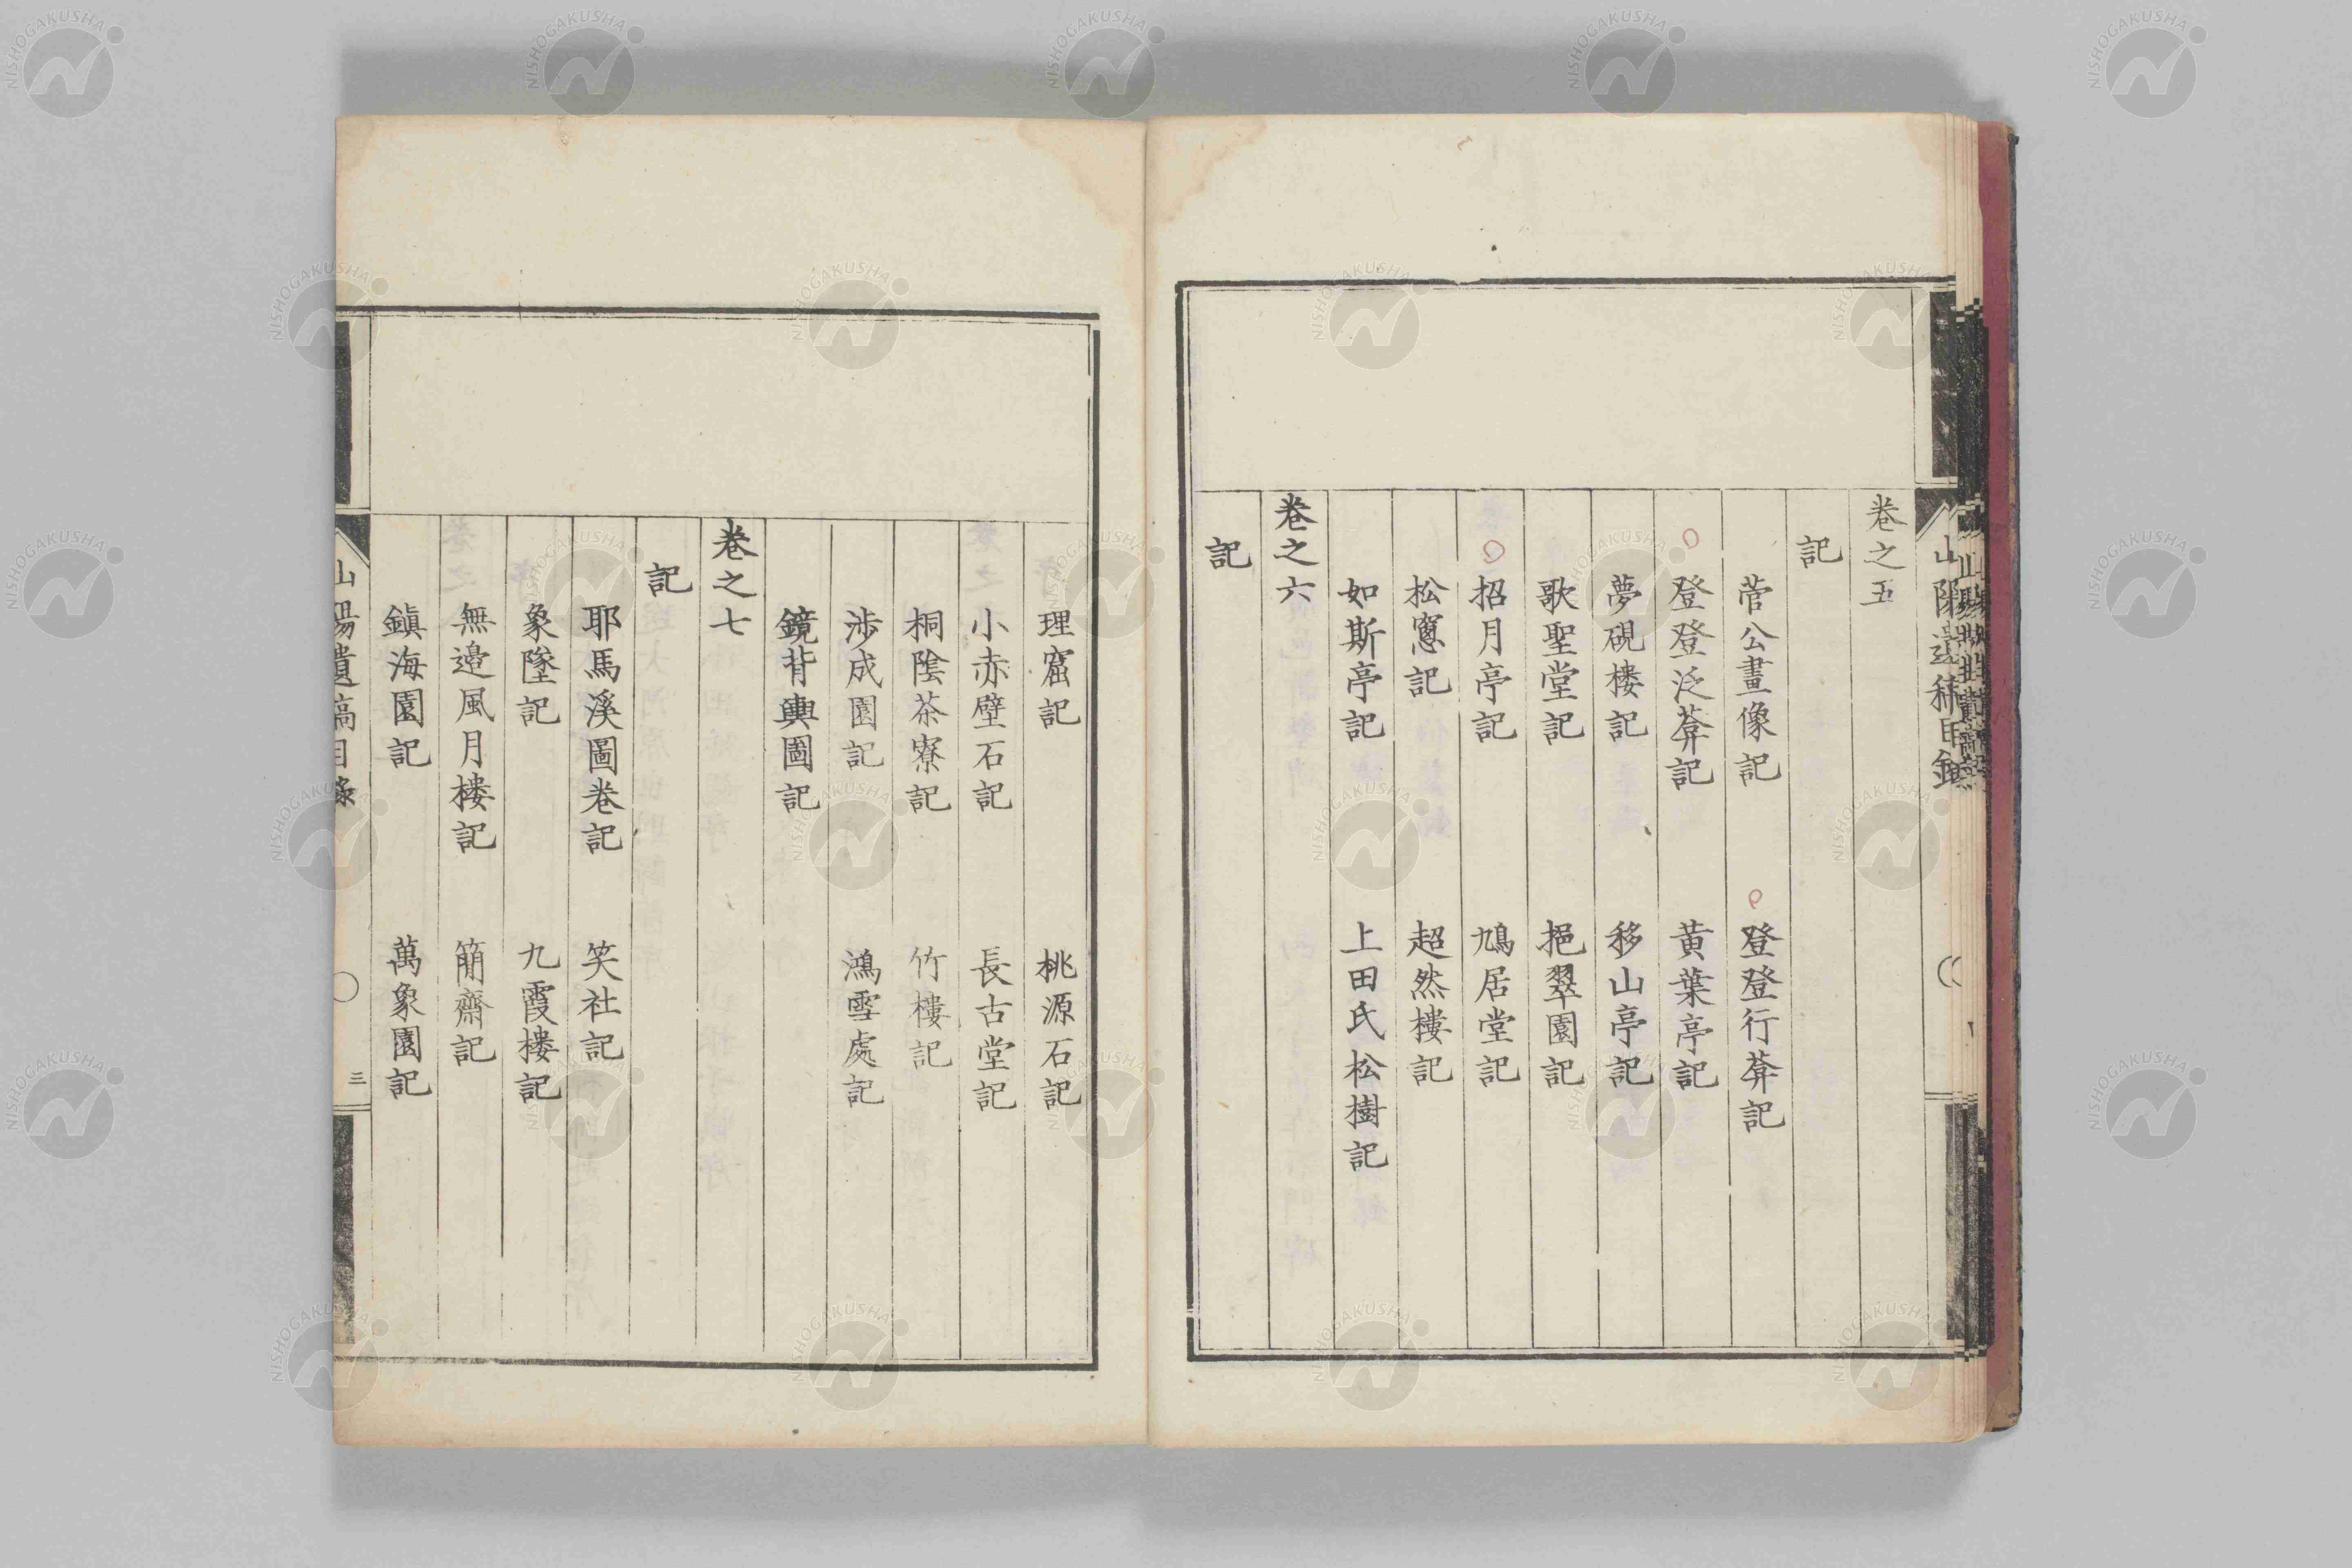 卷之五
記
菅公畫像記　登登行葊記
登登泛葊記　黃葉亭記
夢硯樓記　移山亭記
歌聖堂記　挹翠園記
招月亭記　鳩居堂記
松窻記　超然樓記
如斯亭記　上田氏松樹記
卷之六
記
理窟記　桃源石記
小赤壁石記　長古堂記
桐陰茶寮記　竹樓記
涉成園記　鴻雪處記
鏡背輿圖記
卷之七
記
耶馬溪圖卷記　笑社記
象墜記　九霞樓記
無邊風月樓記　簡齋記
鎮海園記　萬象園記
山陽遺稿目錄
三
山陽遺稿目錄
NISHOGAKUSHA